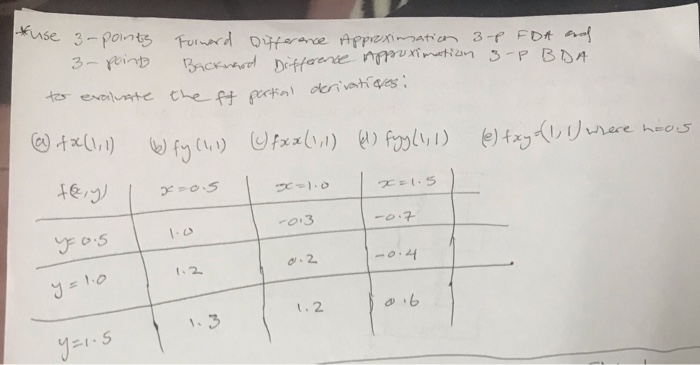 *Use 3-points Forward Difference Approximation 3-P FDA and
3-points Backward Difference Approximation 3-P BDA
to evaluate the ff partial derivatives:
(a) fx(1,1) (b) fy(1,1) (c) fxx(1,1) (d) fyy(1,1) (e) fxy=(1,1) where h=0.5
f(x,y) x=0.5 x=1.0 x=1.5
y=0.5 1.0 -0.3 -0.7
y=1.0 1.2 0.2 -0.4
y=1.5 1.3 1.2 0.6